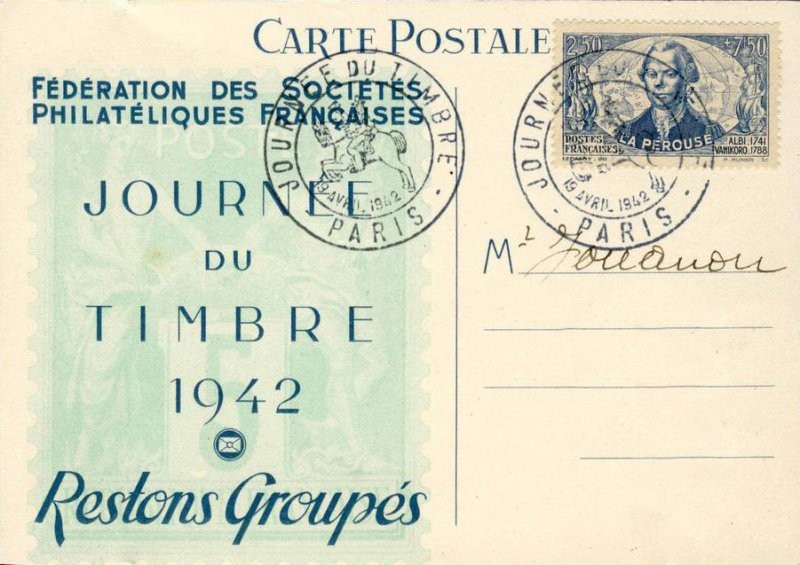 CARTE POSTALE
FÉDÉRATION DES SOCIÉTÉS
PHILATÉLIQUES FRANÇAISES
POST
JOURNÉE
DU
TIMBRE
1942
Restons Groupés
JOURNÉE DU TIMBRE
19 AVRIL 1942
PARIS
2,50 +7,50
POSTES
FRANÇAISES
LA PÉROUSE
ALBI.1741
VANIKORO.1788
JOURNÉE DU
19 AVRIL 1942
PARIS
Mr